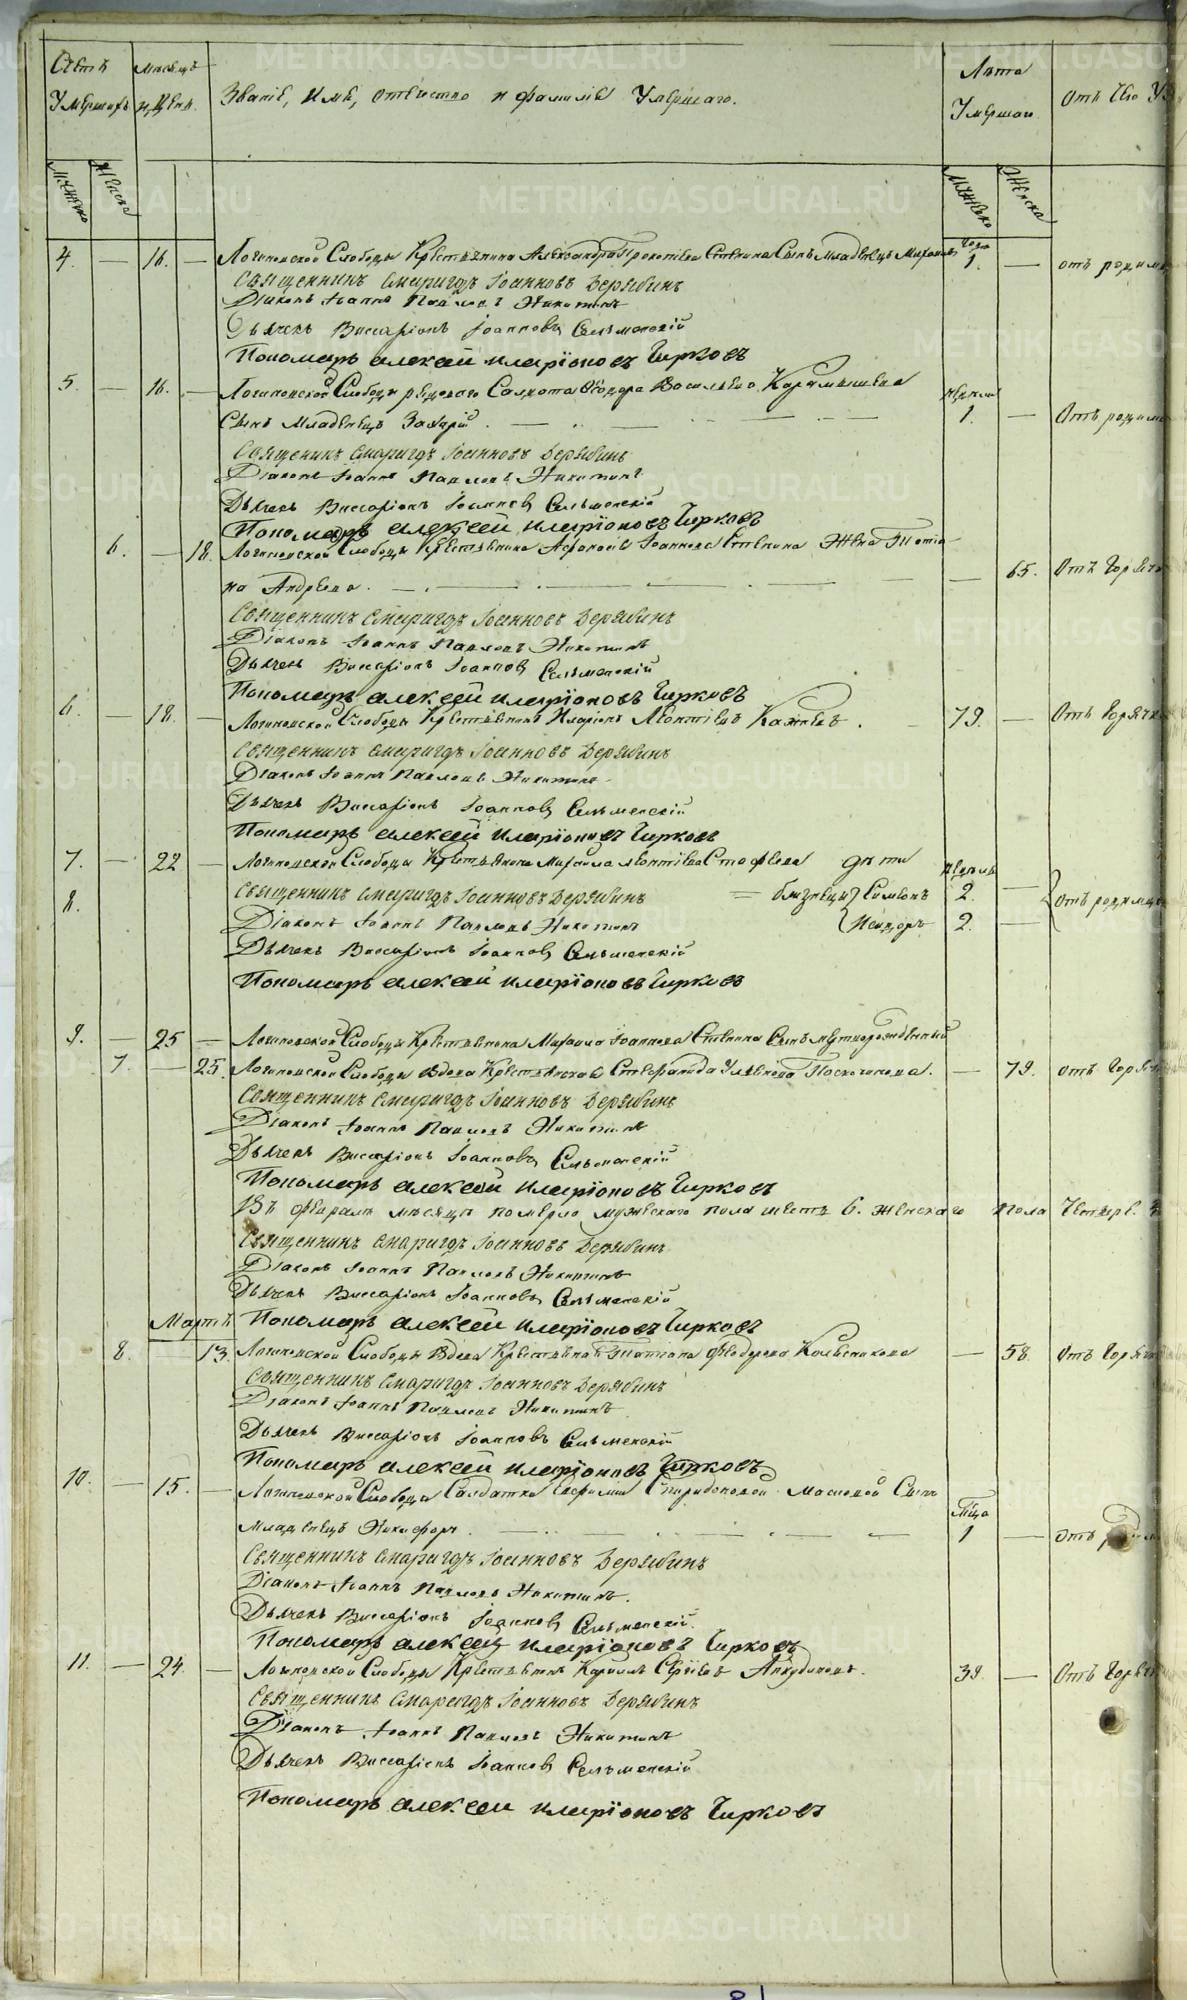 Счетъ Умершихъ
Месяцъ и День
Званіе, Имя, отчество и фамилія Умершаго.
Лета Умершаго
Отъ Чего
Мужеска
Женска
Мужеска
Женска
4. — 16. — Логиновской Слободы Крестьянина Александра Прокопіева Степина Сынъ Младенецъ Михаилъ года 1. — отъ
Священникъ Смарагдъ Іоанновъ Дерябинъ
Діаконъ Іоаннъ Павловъ Никитинъ
Дьячекъ Виссаріонъ Іоанновъ Сельменскій
Пономарь алексей иларіоновъ Чирковъ
5. — 16. — Логиновской Слободы рядоваго Солдата Ѳеодора Васильева Карамышева недели
Сынъ Младенецъ Захарій. 1. — Отъ
Священникъ Смарагдъ Іоанновъ Дерябинъ
Діаконъ Іоаннъ Павловъ Никитинъ
Дьячекъ Виссаріонъ Іоанновъ Сельменскій
Пономарь алексей иларіоновъ Чирковъ
6. — 18. Логиновской Слободы Крестьянина Афонасія Іоаннова Степина Жена Татія-
на Андреева. — 65. Отъ
Священникъ Смарагдъ Іоанновъ Дерябинъ
Діаконъ Іоаннъ Павловъ Никитинъ
Дьячекъ Виссаріонъ Іоанновъ Сельменскій
Пономарь алексей иларіоновъ Чирковъ
6. — 18. — Логиновской Слободы Крестьянинъ Иларіонъ Леонтіевъ. 79. — Отъ
Священникъ Смарагдъ Іоанновъ Дерябинъ
Діаконъ Іоаннъ Павловъ Никитинъ
Дьячекъ Виссаріонъ Іоанновъ Сельменскій
Пономарь алексей иларіоновъ Чирковъ
7. — 22 — Логиновской Слободы Крестьянина Михаила Леонтіева дети недель
8. Священникъ Смарагдъ Іоанновъ Дерябинъ = близнецы Симеонъ 2. — отъ
Діаконъ Іоаннъ Павловъ Никитинъ Исидоръ 2. —
Дьячекъ Виссаріонъ Іоанновъ Сельменскій
Пономарь алексей иларіоновъ Чирковъ
9. — 25 — Логиновской Слободы Крестьянина Михаила Іоаннова Степина Сынъ мертворожденный
7. — 25. Логиновской Слободы вдова Крестьянская. — 79. отъ
Священникъ Смарагдъ Іоанновъ Дерябинъ
Діаконъ Іоаннъ Павловъ Никитинъ
Дьячекъ Виссаріонъ Іоанновъ Сельменскій
Пономарь алексей иларіоновъ Чирковъ
Въ феврале месяце померло мужескаго пола шесть 6. женскаго пола
Священникъ Смарагдъ Іоанновъ Дерябинъ
Діаконъ Іоаннъ Павловъ Никитинъ
Дьячекъ Виссаріонъ Іоанновъ Сельменскій
Мартъ Пономарь алексей иларіоновъ Чирковъ
8. 13. Логиновской Слободы Вдова Татіана Феодорова Колесникова — 58. Отъ
Священникъ Смарагдъ Іоанновъ Дерябинъ
Діаконъ Іоаннъ Павловъ Никитинъ
Дьячекъ Виссаріонъ Іоанновъ Сельменскій
Пономарь алексей иларіоновъ Чирковъ
10. — 15. — Логиновской Слободы Солдатки Евфиміи Спиридоновой Масловой Сынъ
младенецъ Никифоръ. 1 — Отъ
Священникъ Смарагдъ Іоанновъ Дерябинъ
Діаконъ Іоаннъ Павловъ Никитинъ.
Дьячекъ Виссаріонъ Іоанновъ Сельменскій.
Пономарь алексей иларіоновъ Чирковъ
11. — 24. — Логиновской Слободы Крестьянинъ Кирилъ Сергіевъ Анкудиновъ. 39. — Отъ
Священникъ Смарагдъ Іоанновъ Дерябинъ
Діаконъ Іоаннъ Павловъ Никитинъ
Дьячекъ Виссаріонъ Іоанновъ Сельменскій
Пономарь алексей иларіоновъ Чирковъ
METRIKI.GASO-URAL.RU